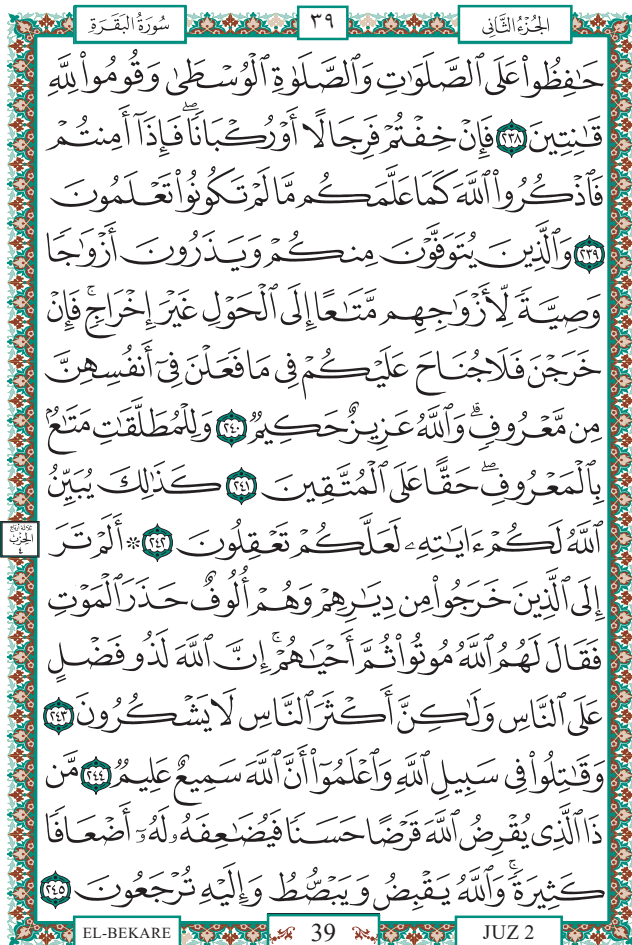 سُورَةُ البَقَرَةِ ٣٩ الجُزْءُ الثَّانِي
حَٰفِظُوا۟ عَلَى ٱلصَّلَوَٰتِ وَٱلصَّلَوٰةِ ٱلْوُسْطَىٰ وَقُومُوا۟ لِلَّهِ
قَٰنِتِينَ ٢٣٨ فَإِنْ خِفْتُمْ فَرِجَالًا أَوْ رُكْبَانًاۖ فَإِذَآ أَمِنتُمْ
فَٱذْكُرُوا۟ ٱللَّهَ كَمَا عَلَّمَكُم مَّا لَمْ تَكُونُوا۟ تَعْلَمُونَ
٢٣٩ وَٱلَّذِينَ يُتَوَفَّوْنَ مِنكُمْ وَيَذَرُونَ أَزْوَٰجًا
وَصِيَّةً لِّأَزْوَٰجِهِم مَّتَٰعًا إِلَى ٱلْحَوْلِ غَيْرَ إِخْرَاجٍۚ فَإِنْ
خَرَجْنَ فَلَا جُنَاحَ عَلَيْكُمْ فِى مَا فَعَلْنَ فِىٓ أَنفُسِهِنَّ
مِن مَّعْرُوفٍۗ وَٱللَّهُ عَزِيزٌ حَكِيمٌ ٢٤٠ وَلِلْمُطَلَّقَٰتِ مَتَٰعٌۢ
بِٱلْمَعْرُوفِۖ حَقًّا عَلَى ٱلْمُتَّقِينَ ٢٤١ كَذَٰلِكَ يُبَيِّنُ
ٱللَّهُ لَكُمْ ءَايَٰتِهِۦ لَعَلَّكُمْ تَعْقِلُونَ ٢٤٢ ۞ أَلَمْ تَرَ
إِلَى ٱلَّذِينَ خَرَجُوا۟ مِن دِيَٰرِهِمْ وَهُمْ أُلُوفٌ حَذَرَ ٱلْمَوْتِ
فَقَالَ لَهُمُ ٱللَّهُ مُوتُوا۟ ثُمَّ أَحْيَٰهُمْۚ إِنَّ ٱللَّهَ لَذُو فَضْلٍ
عَلَى ٱلنَّاسِ وَلَٰكِنَّ أَكْثَرَ ٱلنَّاسِ لَا يَشْكُرُونَ ٢٤٣
وَقَٰتِلُوا۟ فِى سَبِيلِ ٱللَّهِ وَٱعْلَمُوٓا۟ أَنَّ ٱللَّهَ سَمِيعٌ عَلِيمٌ ٢٤٤ مَّن
ذَا ٱلَّذِى يُقْرِضُ ٱللَّهَ قَرْضًا حَسَنًا فَيُضَٰعِفَهُۥ لَهُۥٓ أَضْعَافًا
كَثِيرَةًۚ وَٱللَّهُ يَقْبِضُ وَيَبْصُۜطُ وَإِلَيْهِ تُرْجَعُونَ ٢٤٥
الحِزْبُ
٤
EL-BEKARE 39 JUZ 2